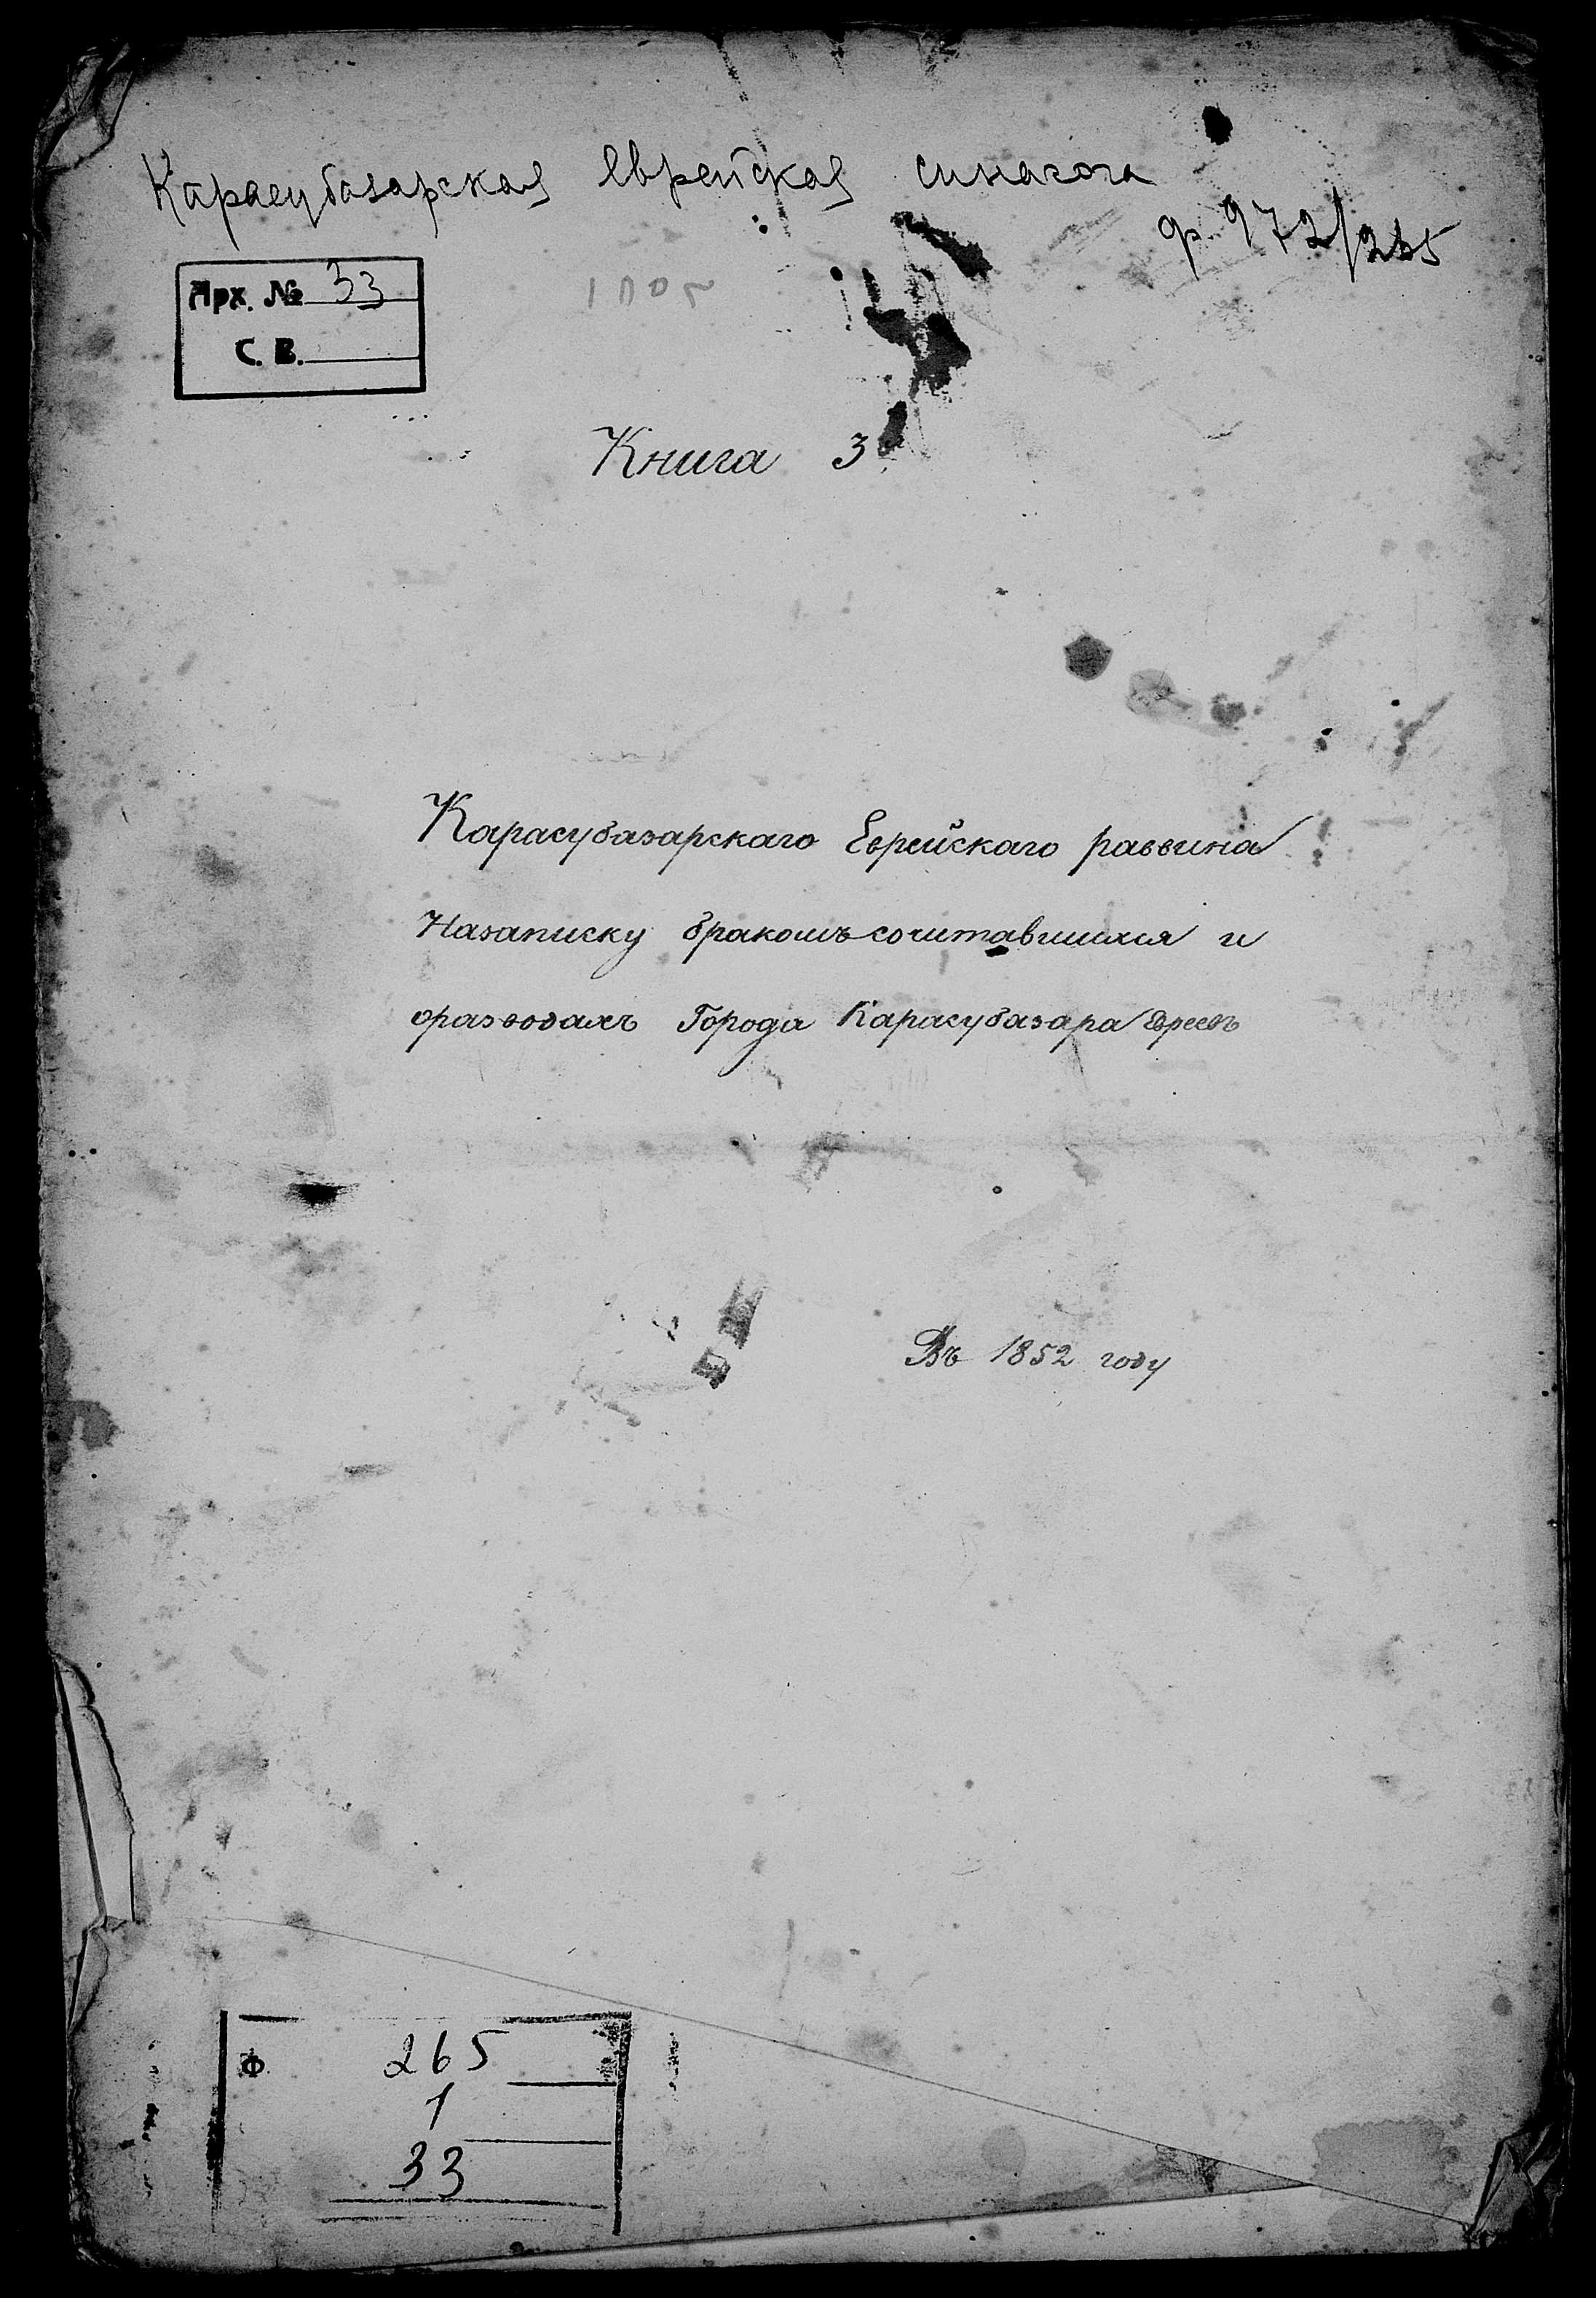 Карасубазарская еврейская синагога
ф. 972/265
Арх. № 33
С. В.
Книга 3
Карасубазарскаго Еврейскаго раввина
Назаписку бракомъсочитавшихся и
оразводахъ Города Карасубазара Евреевъ
Въ 1852 году
Ф 265
1
33